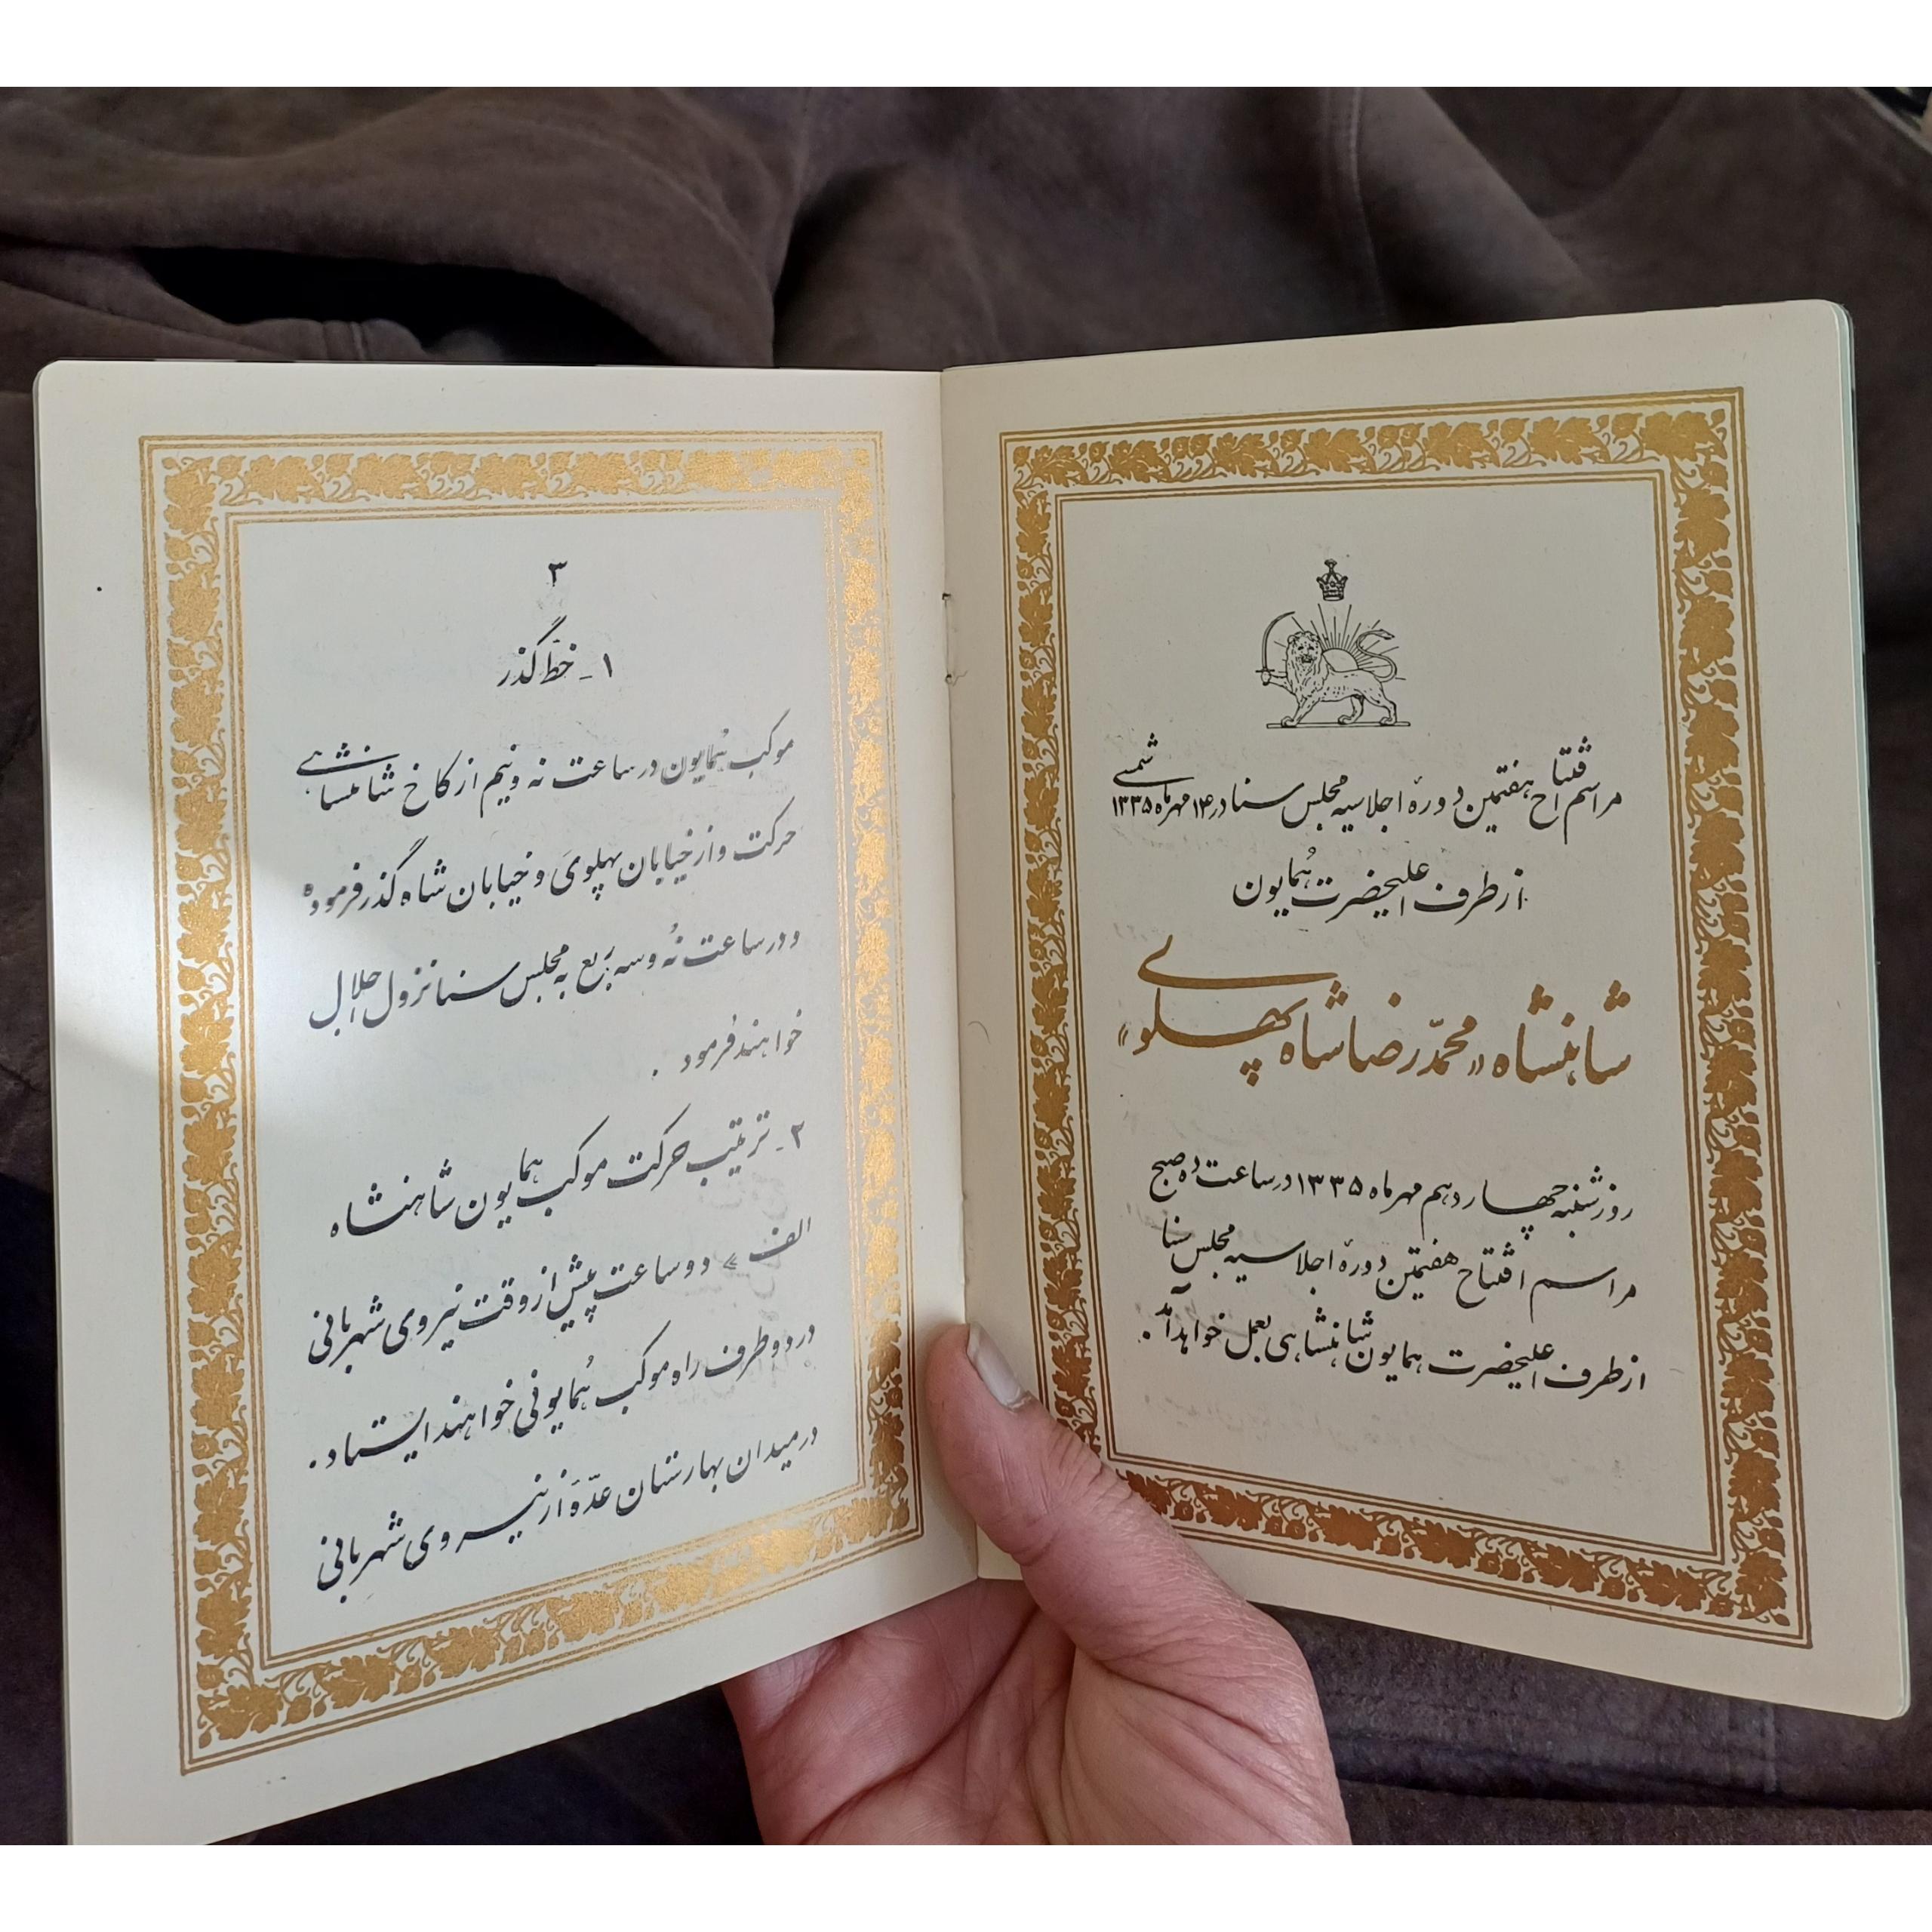 مراسم افتتاح هفتمین دورهٔ اجلاسیه مجلس سنا در ۱۴ مهرماه ۱۳۳۵ شمسی
از طرف اعلیحضرت همایون
شاهنشاه «محمّدرضا شاه پهلوی»
روز شنبه چهاردهم مهرماه ۱۳۳۵ در ساعت ده صبح
مراسم افتتاح هفتمین دورهٔ اجلاسیه مجلس سنا
از طرف اعلیحضرت همایون شاهنشاهی بعمل خواهد آمد.
۳
۱- خطّ گذر
موکب هُمایون در ساعت نه و نیم از کاخ شاهنشاهی
حرکت و از خیابان پهلوی و خیابان شاه گذر فرموده
و در ساعت نُه و سه ربع به مجلس سنا نزول اجلال
خواهند فرمود.
۲- ترتیب حرکت موکب همایون شاهنشاه
الف» دو ساعت پیش از وقت نیروی شهربانی
در دو طرف راه موکب هُمایونی خواهند ایستاد.
در میدان بهارستان عدّهٔ از نیروی شهربانی